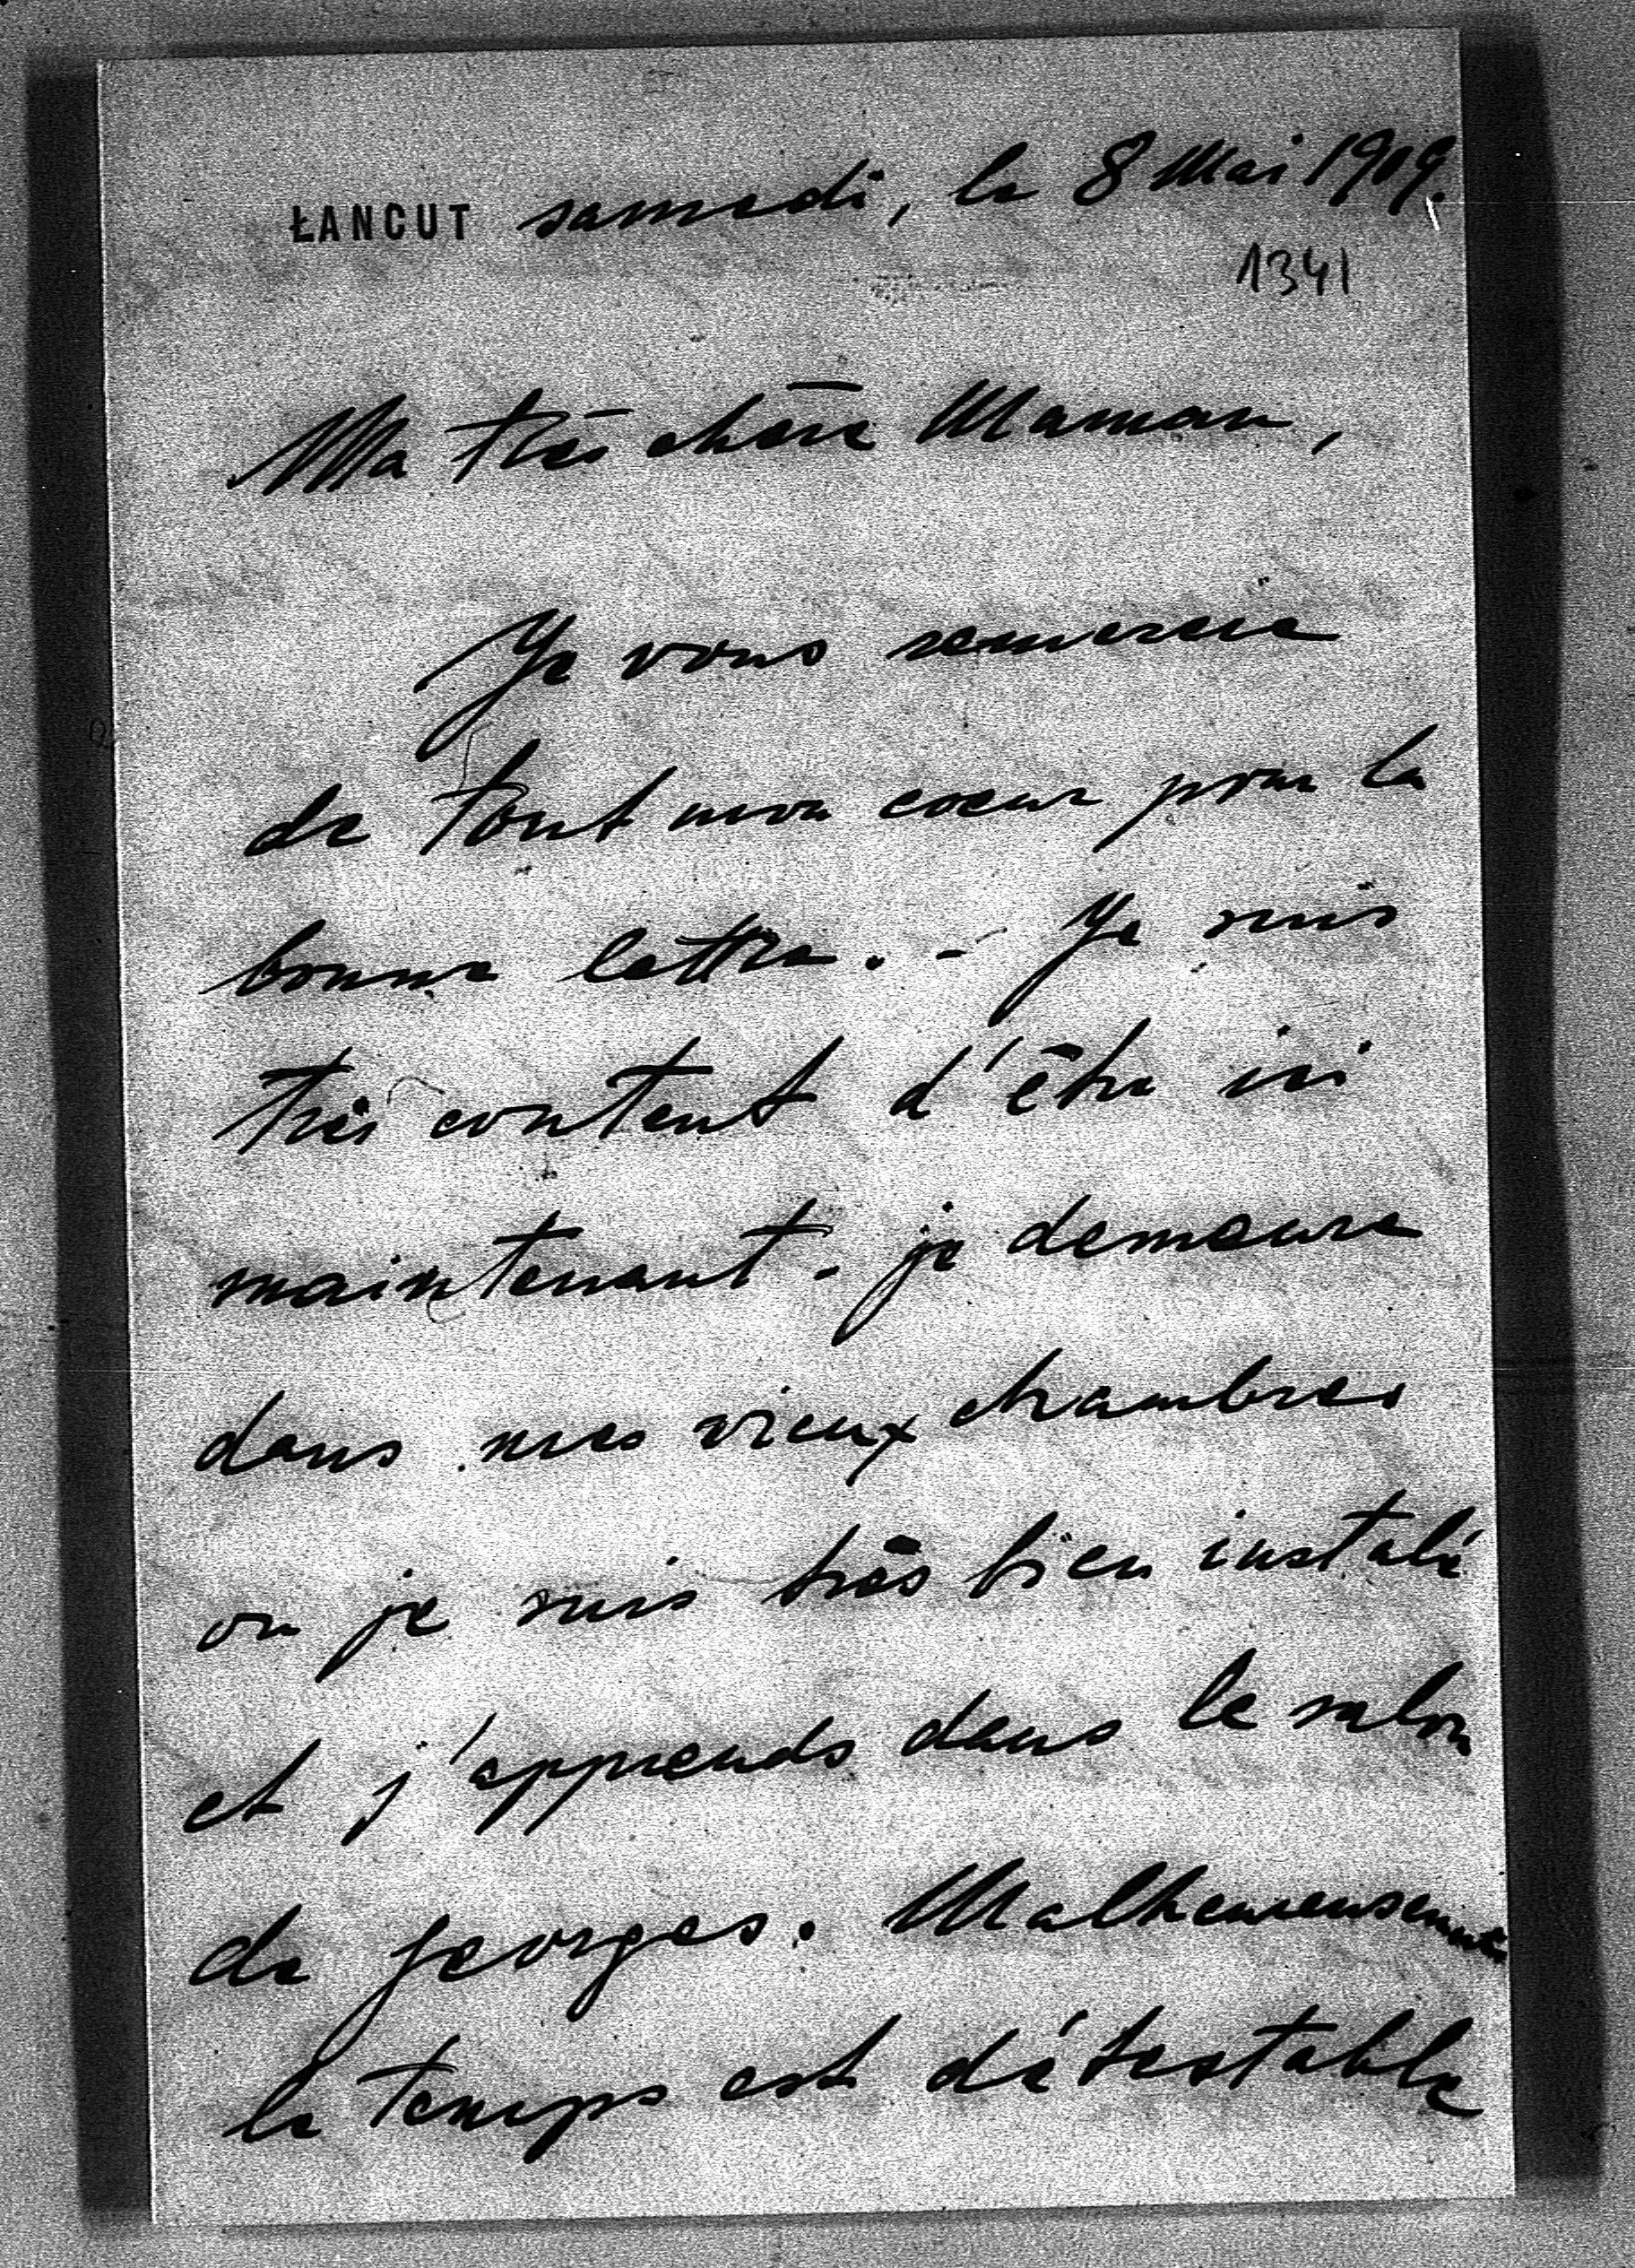 ŁANCUT samedi, le 8 Mai 1909.
1341
Ma très chère Maman,
Je vous remercie
de tout mon coeur pour la
bonne lettre. - Je suis
très content d'être ici
maintenant - je demeure
dans mes vieux chambres
ou je suis très bien instalé
et j'apprends dans le salon
de Georges. Malheureusement
le temps est détestable